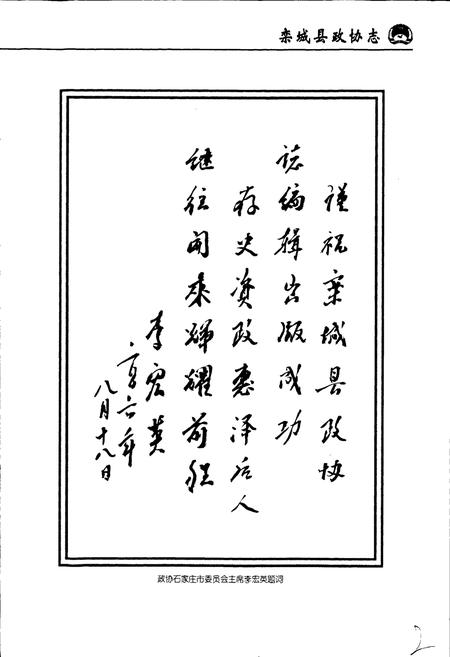 栾城县政协志
谨祝栾城县政协
志编辑出版成功
存史资政惠泽后人
继往开来辉耀前程
李宏英
二〇〇六年
八月十八日
政协石家庄市委员会主席李宏英题词
2